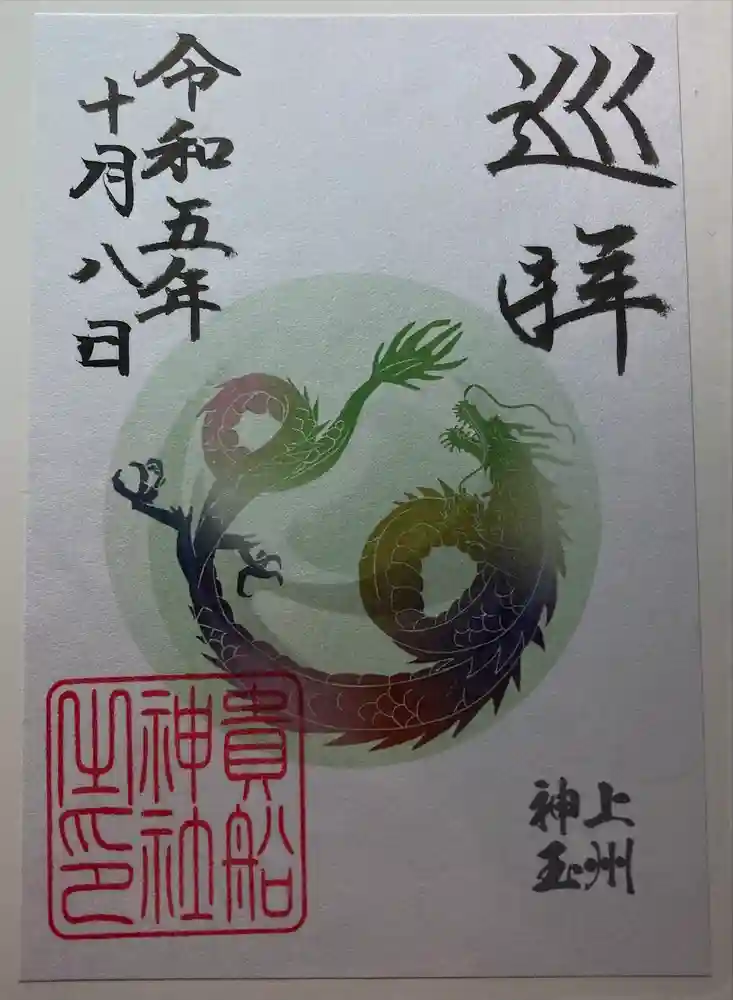 巡拝
上州
神玉
令和五年
十月八日
貴船
神社
之印